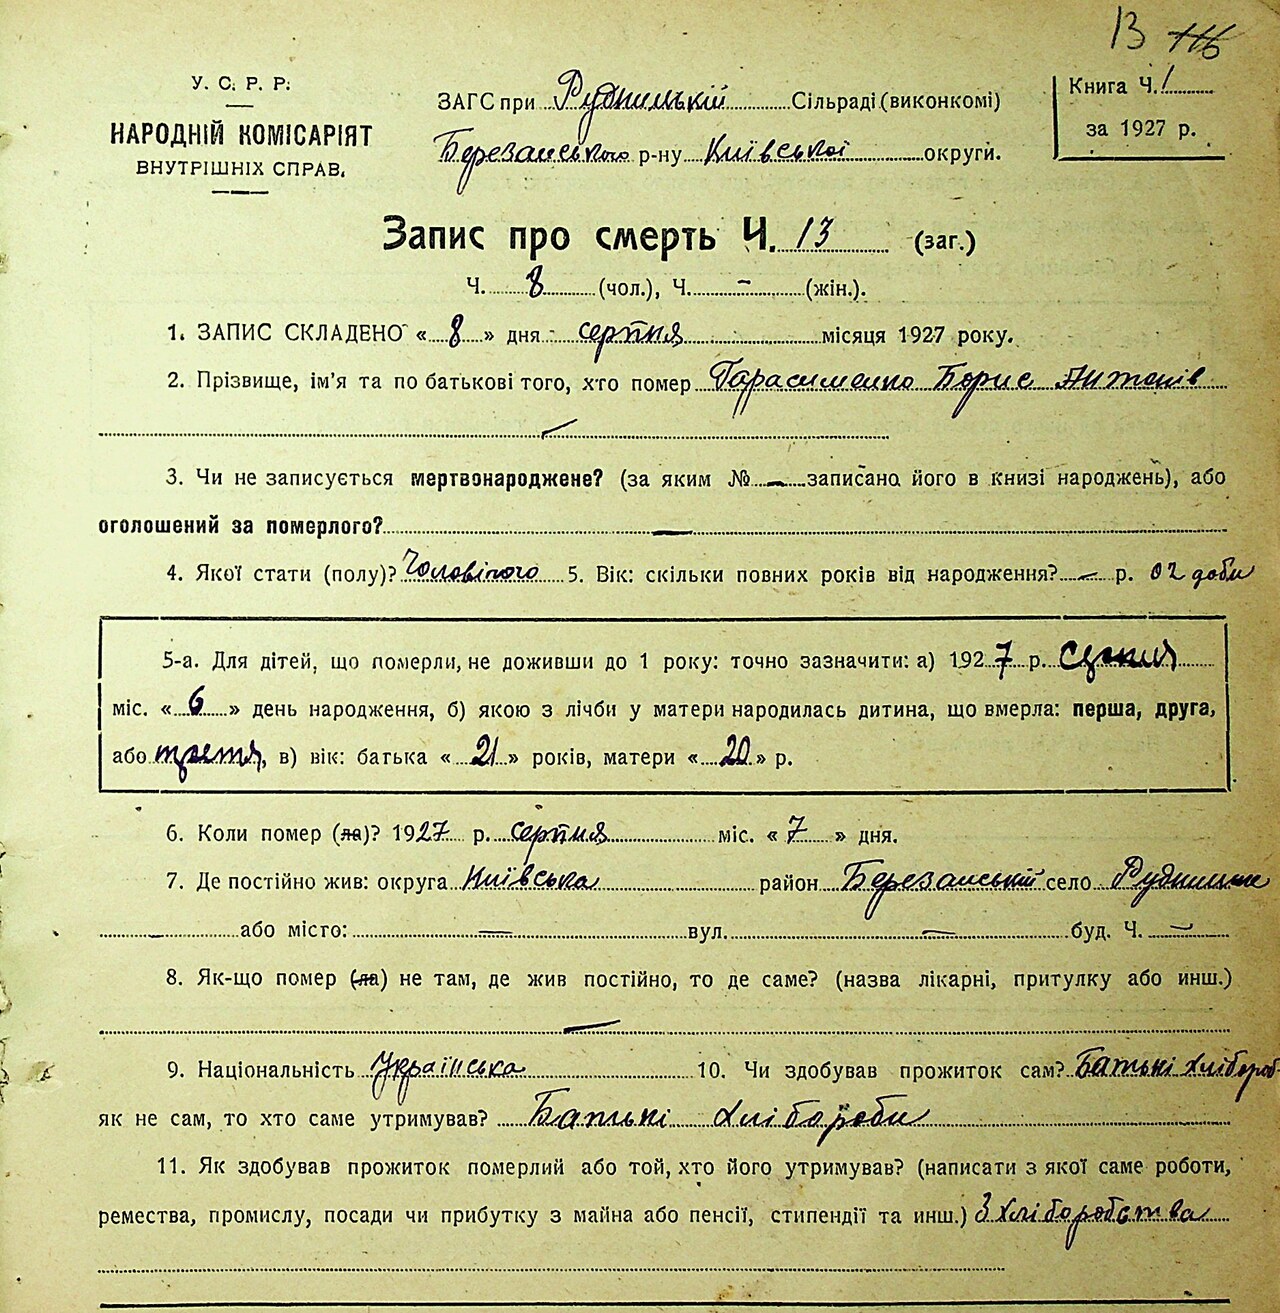 13 116
У. С. Р. Р.
НАРОДНІЙ КОМІСАРІЯТ
ВНУТРІШНІХ СПРАВ.
ЗАГС при Рудницькій Сільраді (виконкомі)
Березанського р-ну Київської округи.
Книга Ч. 1
за 1927 р.
Запис про смерть Ч. 13 (заг.)
Ч. 8 (чол.), Ч. - (жін.).
1. ЗАПИС СКЛАДЕНО « 8 » дня серпня місяця 1927 року.
2. Прізвище, ім'я та по батькові того, хто помер Гарасименко Борис Антонів
3. Чи не записується мертвонароджене? (за яким № — записано його в книзі народжень), або
оголошений за померлого? —
4. Якої стати (полу)? Чоловічого 5. Вік: скільки повних років від народження? — р. 02 доби
5-а. Для дітей, що померли, не доживши до 1 року: точно зазначити: а) 1927 р. серпня
міс. « 6 » день народження, б) якою з лічби у матери народилась дитина, що вмерла: перша, друга,
або третя, в) вік: батька « 21 » років, матери « 20 » р.
6. Коли помер (ла)? 1927 р. серпня міс. « 7 » дня.
7. Де постійно жив: округа Київська район Березанський село
або місто: — вул. — буд. Ч. —
8. Як-що помер (ла) не там, де жив постійно, то де саме? (назва лікарні, притулку або инш.)
—
9. Національність Українська 10. Чи здобував прожиток сам? Батькі хлібороб
як не сам, то хто саме утримував? Батькі хлібороби
11. Як здобував прожиток померлий або той, хто його утримував? (написати з якої саме роботи,
ремества, промислу, посади чи прибутку з майна або пенсії, стипендії та инш.) З хліборобства